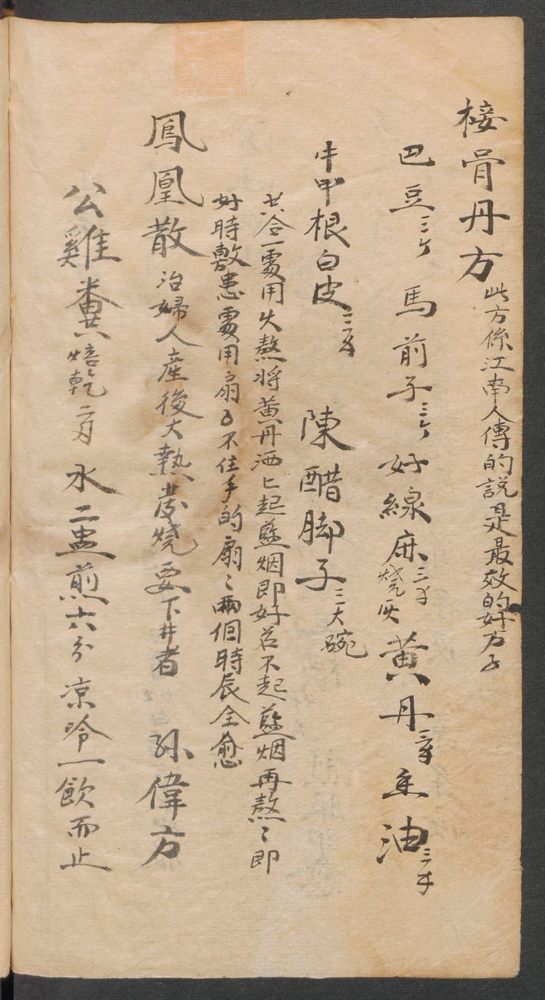 接骨丹方 此方係江南人傳的說是最效的好方子
巴豆三个 馬前子三个 好線麻三才燒灰 黄丹二才 香油三才
牛甲根白皮三才 陳醋腳子三大碗
共合一處用火熬將黄丹洒上起藍烟即好若不起藍烟再熬々即
好時敷患處用扇子不住手的扇々兩個時辰全愈
鳳凰散 治婦人產後大熱發燒要下井者 孙偉方
公雞糞焙乾 水二盅煎六分凉冷一飲而止